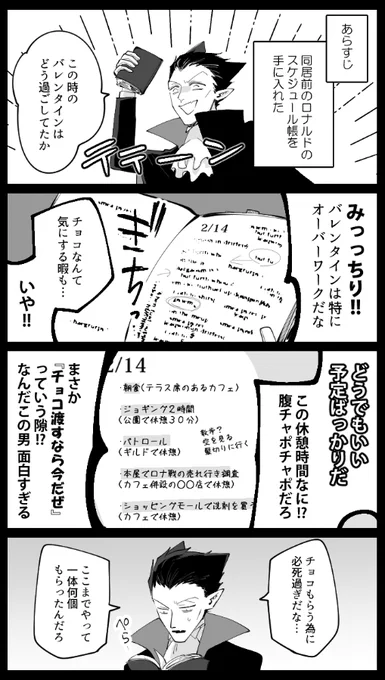 あらすじ
同居前のロナルドの
スケジュール帳を
手に入れた
この時の
バレンタインは
どう過ごしてたか
テテーン
みっっちり!!
バレンタインは特に
オーバーワークだな
2/14
チョコなんて
気にする暇も…
いや!!
どうでもいい
予定ばっかりだ
この休憩時間なに!?
腹チャポチャポだろ
2/14
・朝食(テラス席のあるカフェ)
・ジョギング2時間
(公園で休憩30分)
・パトロール
(ギルドで休憩)
空を見る
髪切りに行く
・本屋でロナ戦の売れ行き調査
(カフェ併設の〇〇店で休憩)
・ショッピングモールで洗剤を買う
(カフェで休憩)
まさか
『チョコ渡すなら今だぜ』
っていう隙!?
なんだこの男 面白すぎる
チョコもらう為に
必死過ぎだな…
ぺら
ここまでやって
一体何個
もらったんだろ